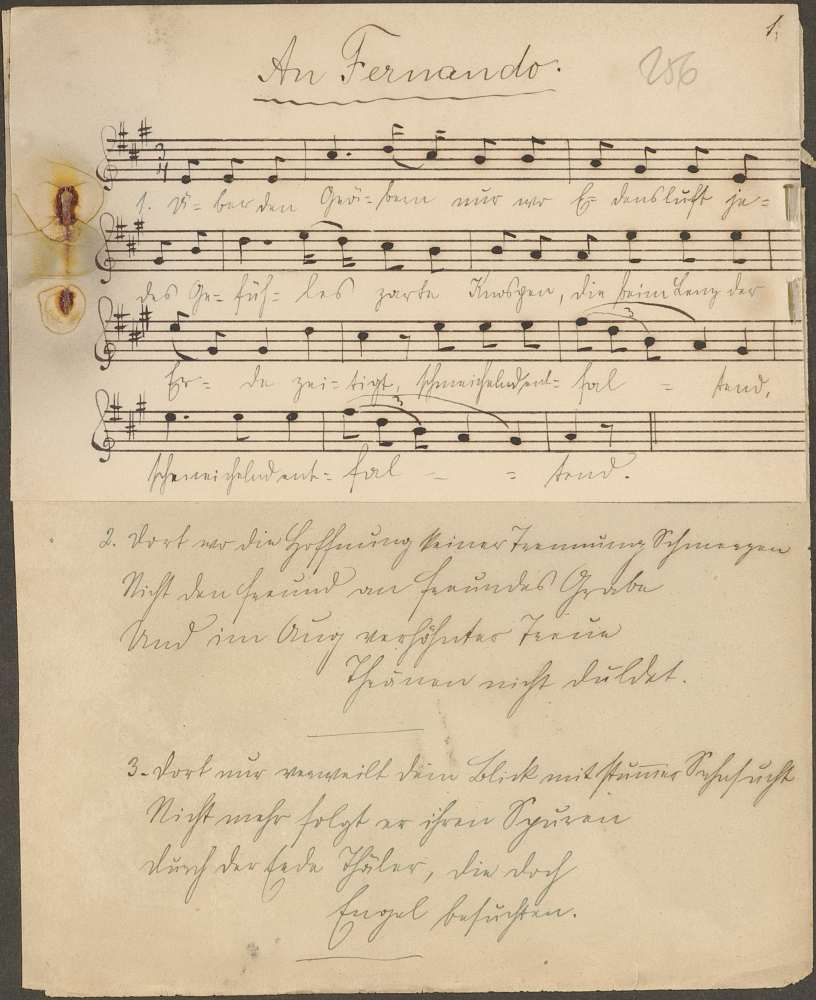 1.
An Fernando.
256
3/4
1. Ü= ber den Grä= bern nur wo E= densluft je=
des Ge= füh= les zarte Knospen, die beim Lenz der
Er= de zei= tigt, schmeichelnd ent= fal = tend,
3
schmeichelnd ent= fal - = tend.
3
2. Dort wo die Hoffnung keiner Trennung Schmerzen
Nicht den Freund an Freundes Grabe
Und im Aug verhöhnter Treue
Thränen nicht duldet.
3. Dort nur verweilt dein Blick mit stummer Sehnsucht
Nicht mehr folgt er ihren Spuren
Durch der Erde Thäler, die doch
Engel besuchten.